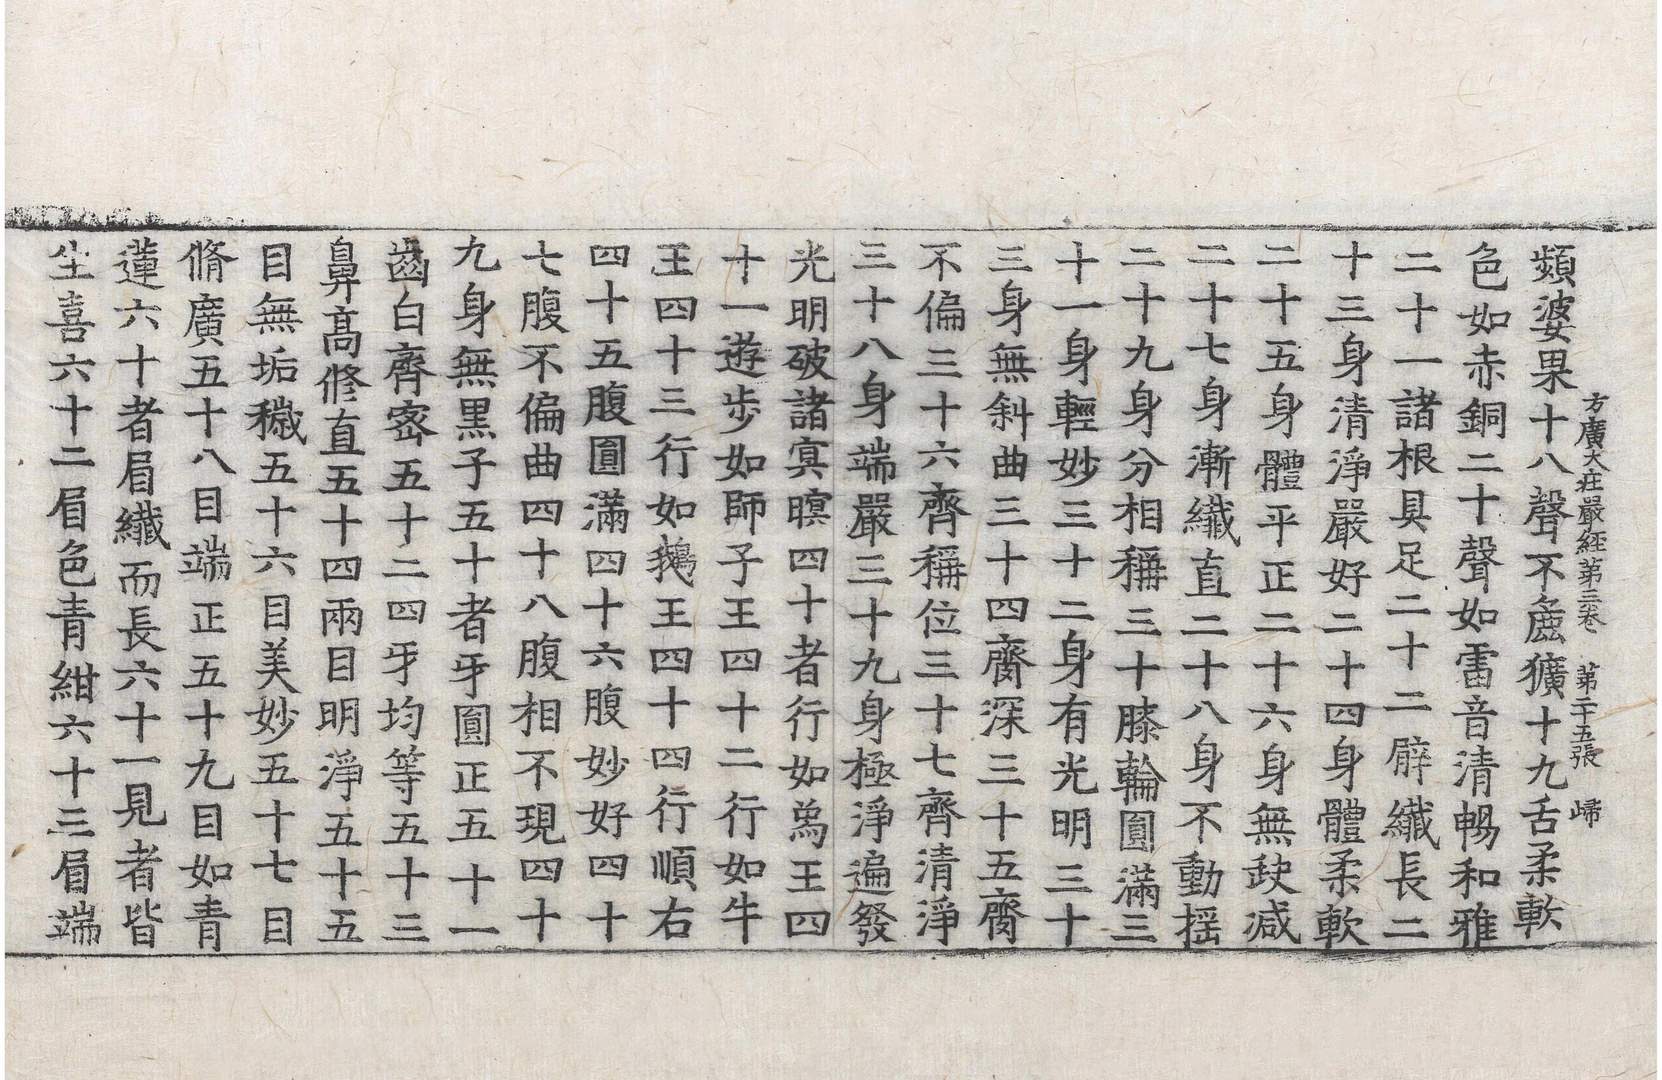 方廣大莊嚴經第三卷 第二十五張 歸
頻婆果十八聲不麁獷十九舌柔軟
色如赤銅二十聲如雷音清暢和雅
二十一諸根具足二十二臂纖長二
十三身清淨嚴好二十四身體柔軟
二十五身體平正二十六身無缺減
二十七身漸纖直二十八身不動搖
二十九身分相稱三十膝輪圓滿三
十一身輕妙三十二身有光明三十
三身無斜曲三十四齎深三十五齎
不偏三十六齊稱位三十七齊清淨
三十八身端嚴三十九身極淨遍發
光明破諸冥瞑四十者行如爲王四
十一遊步如師子王四十二行如牛
王四十三行如鵝王四十四行順右
四十五腹圓滿四十六腹妙好四十
七腹不偏曲四十八腹相不現四十
九身無黑子五十者牙圓正五十一
齒白齊密五十二四牙均等五十三
鼻高修直五十四兩目明淨五十五
目無垢穢五十六目美妙五十七目
脩廣五十八目端正五十九目如青
蓮六十者眉纖而長六十一見者皆
生喜六十二眉色青紺六十三眉端